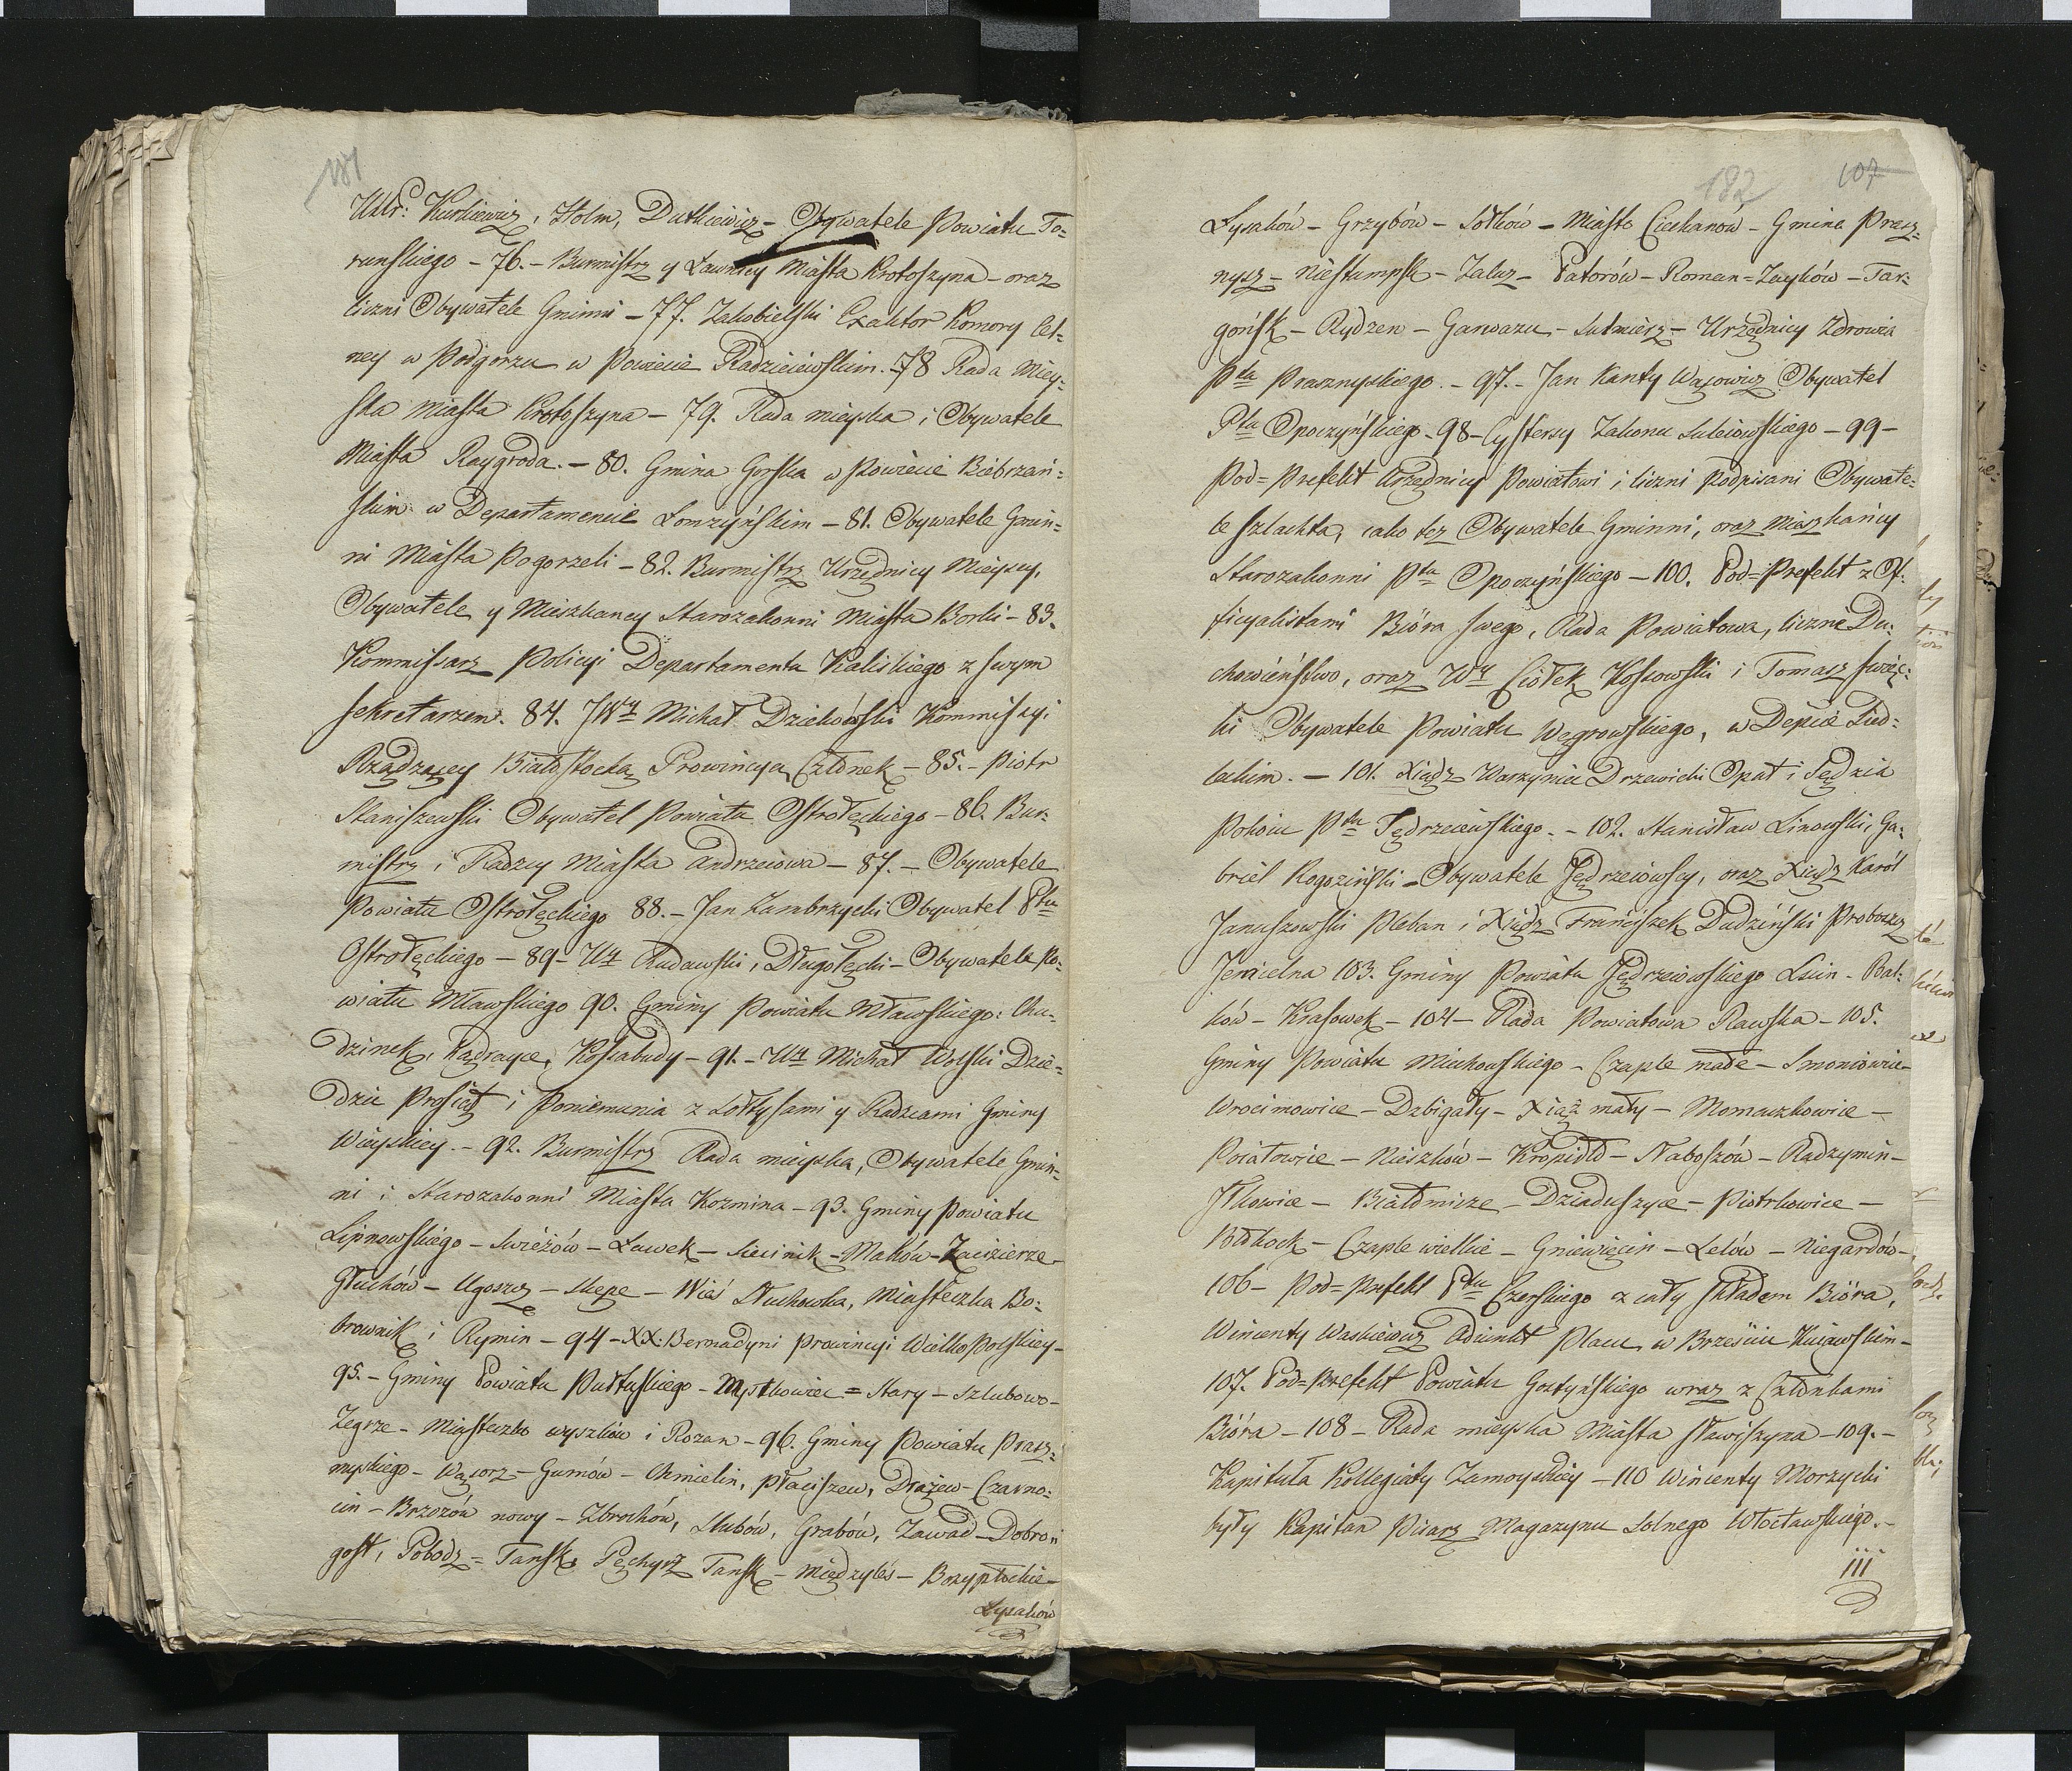 181
Ustr: Kurkiewicz, Holm, Dutkiewicz – Obywatele Powiatu To=
runskiego – 76. – Burmistrz y Ławnicy Miasta Krotoszyna – oraz
liczni Obywatele Gminni – 77. Zakobielski Exaktor Komory Cel=
ney w Podgorzu w Powiecie Radzieiewskim. – 78 Rada Miey=
ska miasta Krotoszyna – 79. Rada mieyska i Obywatele
Miasta Raygroda. – 80. Gmina Gorska w Powiecie Biebrzań=
skim w Departamencie Łomżyńskim – 81. Obywatele Gmin=
ni Miasta Pogorzeli – 82. Burmistrz Urzędnicy Mieyscy,
Obywatele y Mieszkancy Starozakonni Miasta Borki – 83.
Kommissarz Policyi Departamentu Kaliskiego z swym
sekretarzem. 84. JW. Michał Dziekoński Kommissyi
Rządzącey Białostocką Prowincyą Członek – 85. – Piotr
Staniszewski Obywatel Powiatu Ostrołęckiego – 86. Bur=
mistrz i Radzcy Miasta Andrzeiowa – 87. – Obywatele
Powiatu Ostrołęckiego 88. – Jan Zambrzycki Obywatel Ptu
Ostrołęckiego – 89 – Rudawski, Długołęcki – Obywatele Po=
wiatu Mławskiego 90. Gminy Powiatu Mławskiego: Chu=
dzinek, Kądrayce, Kossabudy – 91. – Michał Wolski Dzie=
dzic Prosiąt i Poniemunia z sołtysami y Radzcami Gminy
Wieyskiey. – 92. Burmistrz Rada mieyska, Obywatele Gmin=
ni i Starozakonni Miasta Kozmina – 93. Gminy Powiatu
Lipnowskiego – Swieżów – Ławek – Siecinik – Maków – Zacizierze
Głuchów – Ugoszcz – Skępe – Wieś Stuchowka, Miasteczka Bo=
brownik i Rypin – 94 – XX. Bernadyni prowincyi WielkoPolskiey –
95. – Gminy Powiatu Pułtuskiego – Mystkowiec = Stary – Szlubowo –
Zegrze – Miasteczko wyszków i Rozan – 96. Gminy Powiatu Prasz=
nyskiego – Wąsorz – Gumów – Chmielin, Płaciszew, Drążew – Czarno=
cin – Brzozów nowy – Zbrochów, Słubów, Grabów, Zawad – Dobro=
gost, Pobodz = Tansk, Pęchyrz Tansk – Międzyles – Bozypłockie –
Łysaków
182 107
Łysaków – Grzybów – Sołków – Miasto Ciechanów – Gmina Prasz=
nysz – Niestumpsk – Zaluz – Patorów – Roman = Zayków – Tar=
gońsk – Rydzew – Garwazu – Sulmierz – Urzędnicy Zdrowia
Ptu Prasznyskiego. – 97. – Jan Kanty Wąsowicz Obywatel
Ptu Opoczyńskiego – 98 – Cystersy Zakonu Suleiowskiego – 99 –
Pod=Prefekt Urzędnicy Powiatowi i liczni Podpisani Obywate=
le szlachta, iako tez Obywatele Gminni, oraz Mieszkańcy
Starozakonni Ptu Opoczyńskiego – 100. Pod=Prefekt z Of=
ficyalistami Bióra swego, Rada Powiatowa, liczne Du=
chowieństwo, oraz Ciołek Kossowski i Tomasz Swięc=
ki Obywatele Powiatu Węgrowskiego, w Depcie Siedl=
leckim. – 101. Xiądz Warzyniec Drzewicki Opat i Sędzia
Pokoiu Ptu Jędrzeiewskiego. – 102. Stanisław Linowski, Ga=
briel Rogoziński – Obywatele Jędrzeiowscy, oraz Xiądz Karól
Januszowski Pleban i Xiądz Franciszek Dudziński Proboszcz
Jemielna 103. Gminy Powiatu Jędrzeiowskiego Łuin – Bał=
ków – Krasowek – 104 – Rada Powiatowa Rawska – 105.
Gminy Powiatu Miechowskiego – Czaple małe – Smoniowice –
Wrocimowice – Dzbigały – Xiąż mały – Momaczkowice –
Poiałowice – Nieszków – Kropidło – Naboszów – Radzymin –
Ilkowice – Białomirze – Dziaduszyce – Piotrkowice –
Bidkock – Czaple wielkie – Gniewięcin – Lelów – Niegardów –
106 – Pod=Prefekt Ptu Czerskiego z całym składem Bióra,
Wincenty Waskiewicz Adiunkt Placu w Brześciu Kuiawskim –
107. Pod=Prefekt Powiatu Gostyńskiego wraz z Członkami
Bióra – 108 – Rada mieyska Miasta Stawiszyna – 109. –
Kapituła Kollegiaty Zamoyskiey – 110 Wincenty Morzycki
były Kapitan Pisarz Magazynu Solnego Włocławskiego. –
111